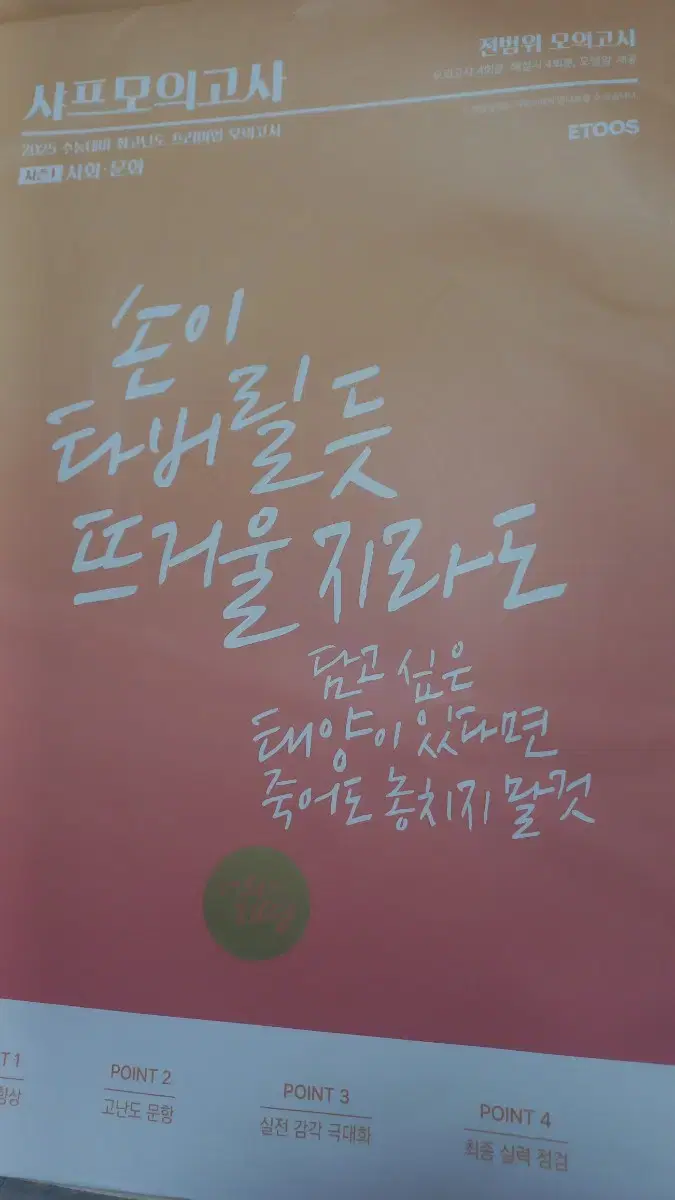 샤프모의고사
2025 수능대비 최고난도 프리미엄 모의고사
시즌1 사회·문화
전범위 모의고사
모의고사 4회분, 해설지 4회분, OMR 제공
ETOOS
손이
타버릴 듯
뜨거울지라도
담고 싶은
태양이 있다면
죽어도 놓치지 말 것
T 1
향상
POINT 2
고난도 문항
POINT 3
실전 감각 극대화
POINT 4
최종 실력 점검